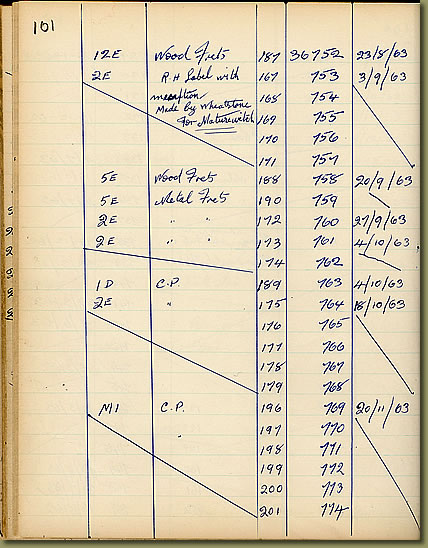 101
12E Wood Frets 187 36752 23/8/63
2E R.H Label with 167 753 3/9/63
168 754
Made by Wheatstone
for 169 755
170 756
171 757
5E Wood Frets 188 758 20/9/63
5E Metal Frets 190 759
2E " " 172 760 27/9/63
2E " " 173 761 4/10/63
174 762
1D C.P. 189 763 4/10/63
2E " 175 764 18/10/63
176 765
177 766
178 767
179 768
M1 C.P. 196 769 20/11/63
197 770
" 198 771
199 772
200 773
201 774